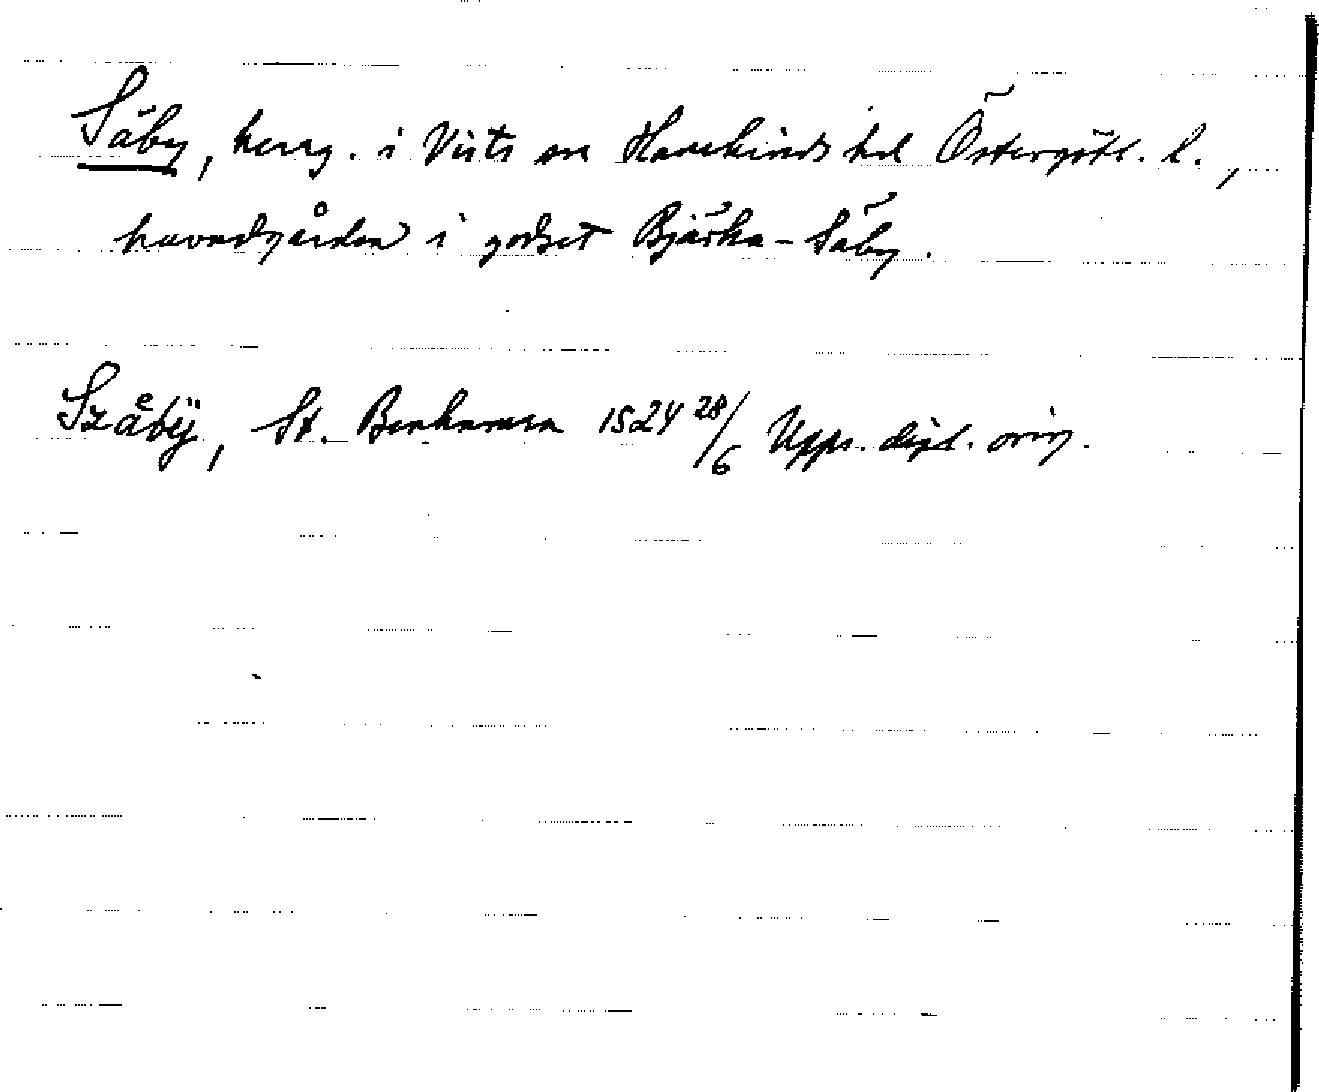 Säby, herrg. i Vists sn Hanekinds hd Östergötl. l.,
huvudgården i godset Bjärka-Säby.
Szåbÿ, St. Benhamra 1524 28/6 Upps. dipl. orig.